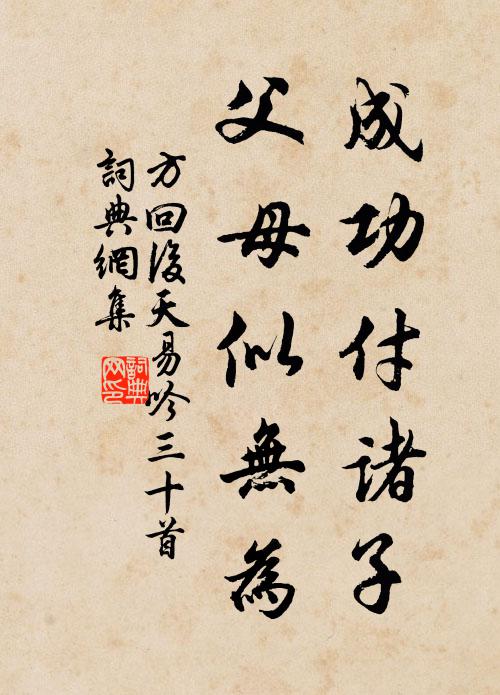 成功付諸子
父母似無為
方回後天易吟三十首
詞典網集
詞典网印